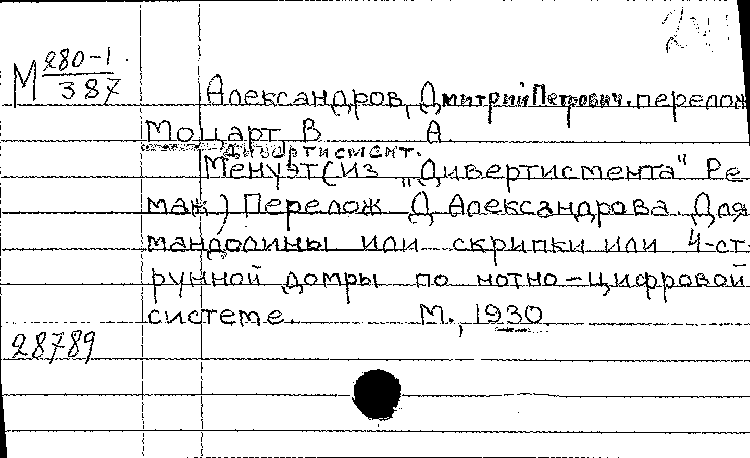 М 280-1.
387
Александров, Дмитрий Петрович. перелож
Моцарт В А.
Дивертисмент.
Менуэт (из „Дивертисмента" Ре
маж) Перелож Д Александрова. Для
мандолины или скрипки или 4-ст-
рунной домры по нотно-цифровой
системе. М., 1930
28789